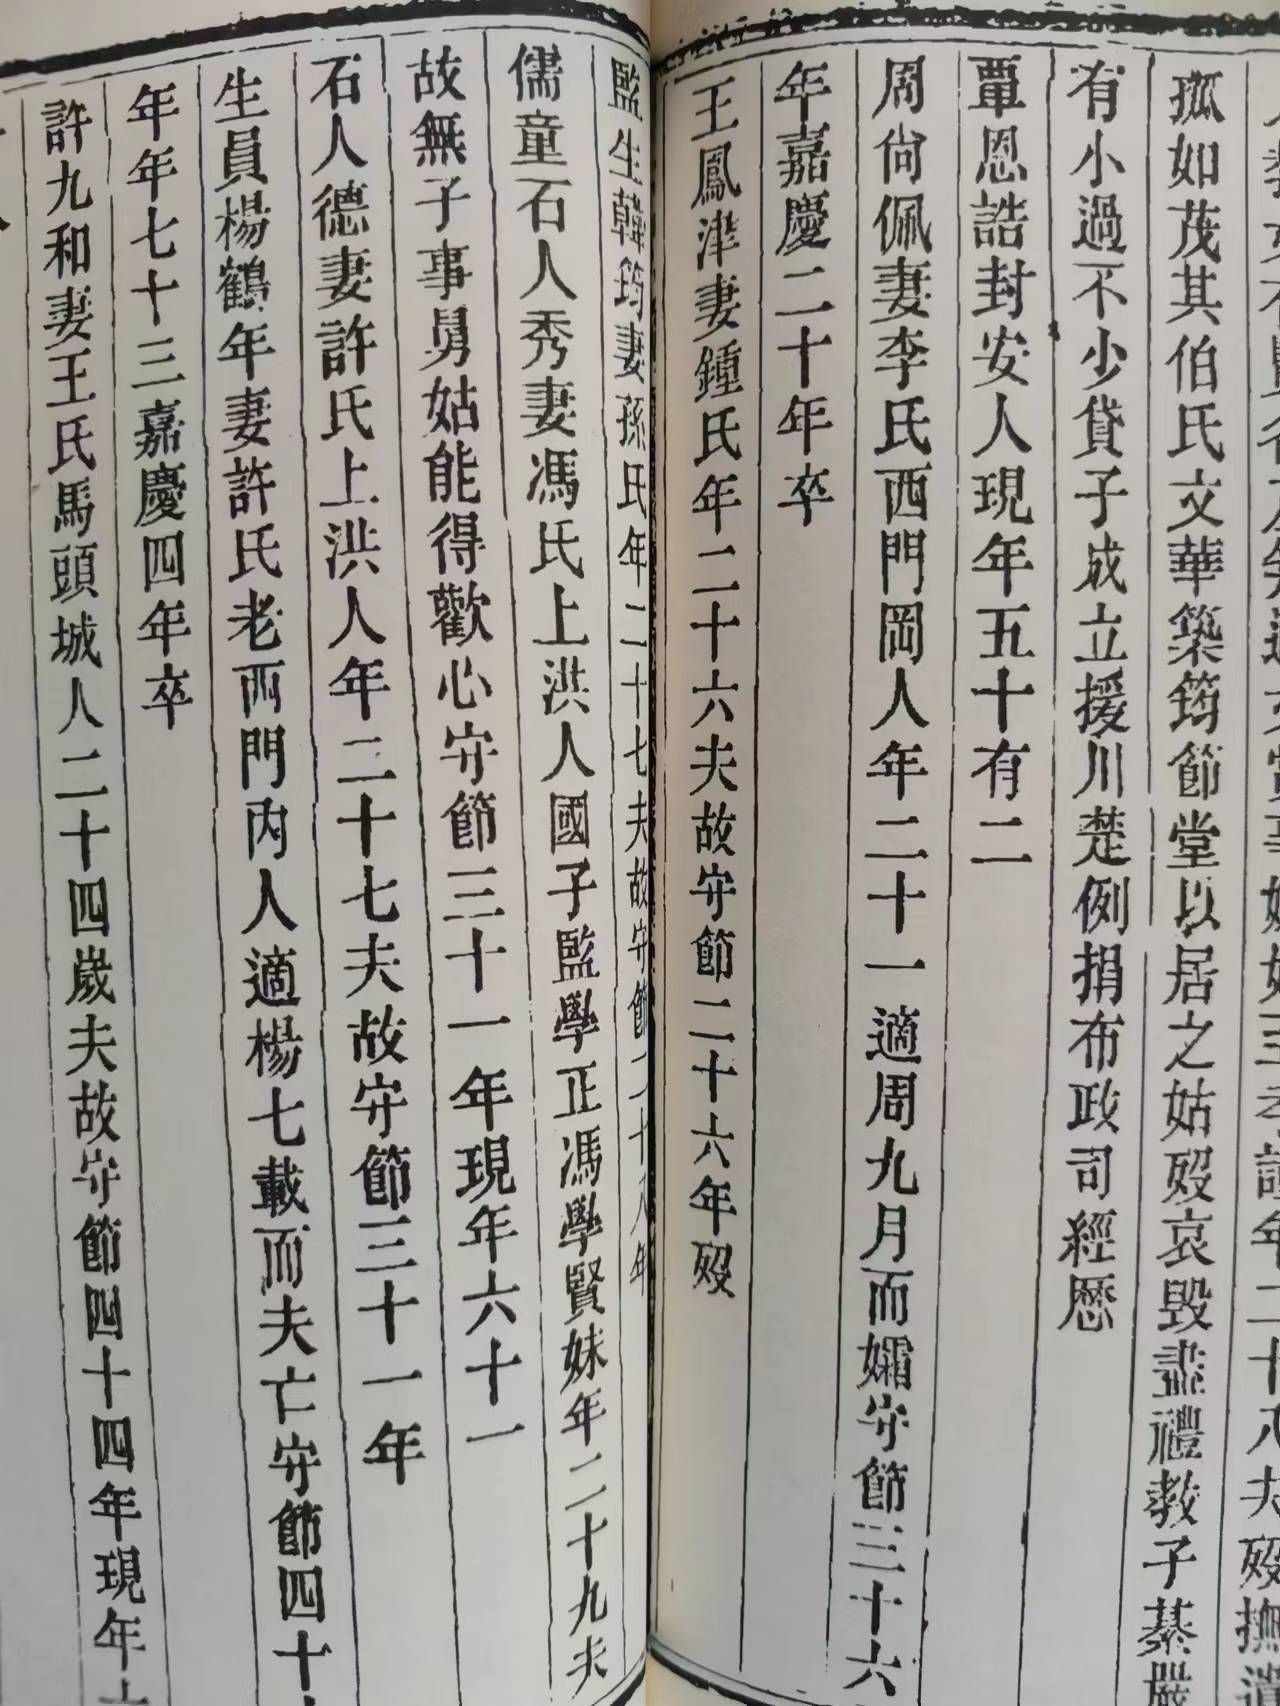 孤如茂其伯氏文華築筠節堂以居之姑歿哀毀盡禮教子綦嚴
有小過不少貸子成立援川楚例捐布政司經歷
覃恩誥封安人現年五十有二
周尙佩妻李氏西門岡人年二十一適周九月而孀守節三十六
年嘉慶二十年卒
王鳳津妻鍾氏年二十六夫故守節二十六年歿
監生韓筠妻孫氏年二十七夫故守節二十八年
儒童石人秀妻馮氏上洪人國子監學正馮學賢妹年二十九夫
故無子事舅姑能得歡心守節三十一年現年六十一
石人德妻許氏上洪人年二十七夫故守節三十一年
生員楊鶴年妻許氏老西門內人適楊七載而夫亡守節四十
年年七十三嘉慶四年卒
許九和妻王氏馬頭城人二十四歲夫故守節四十四年現年